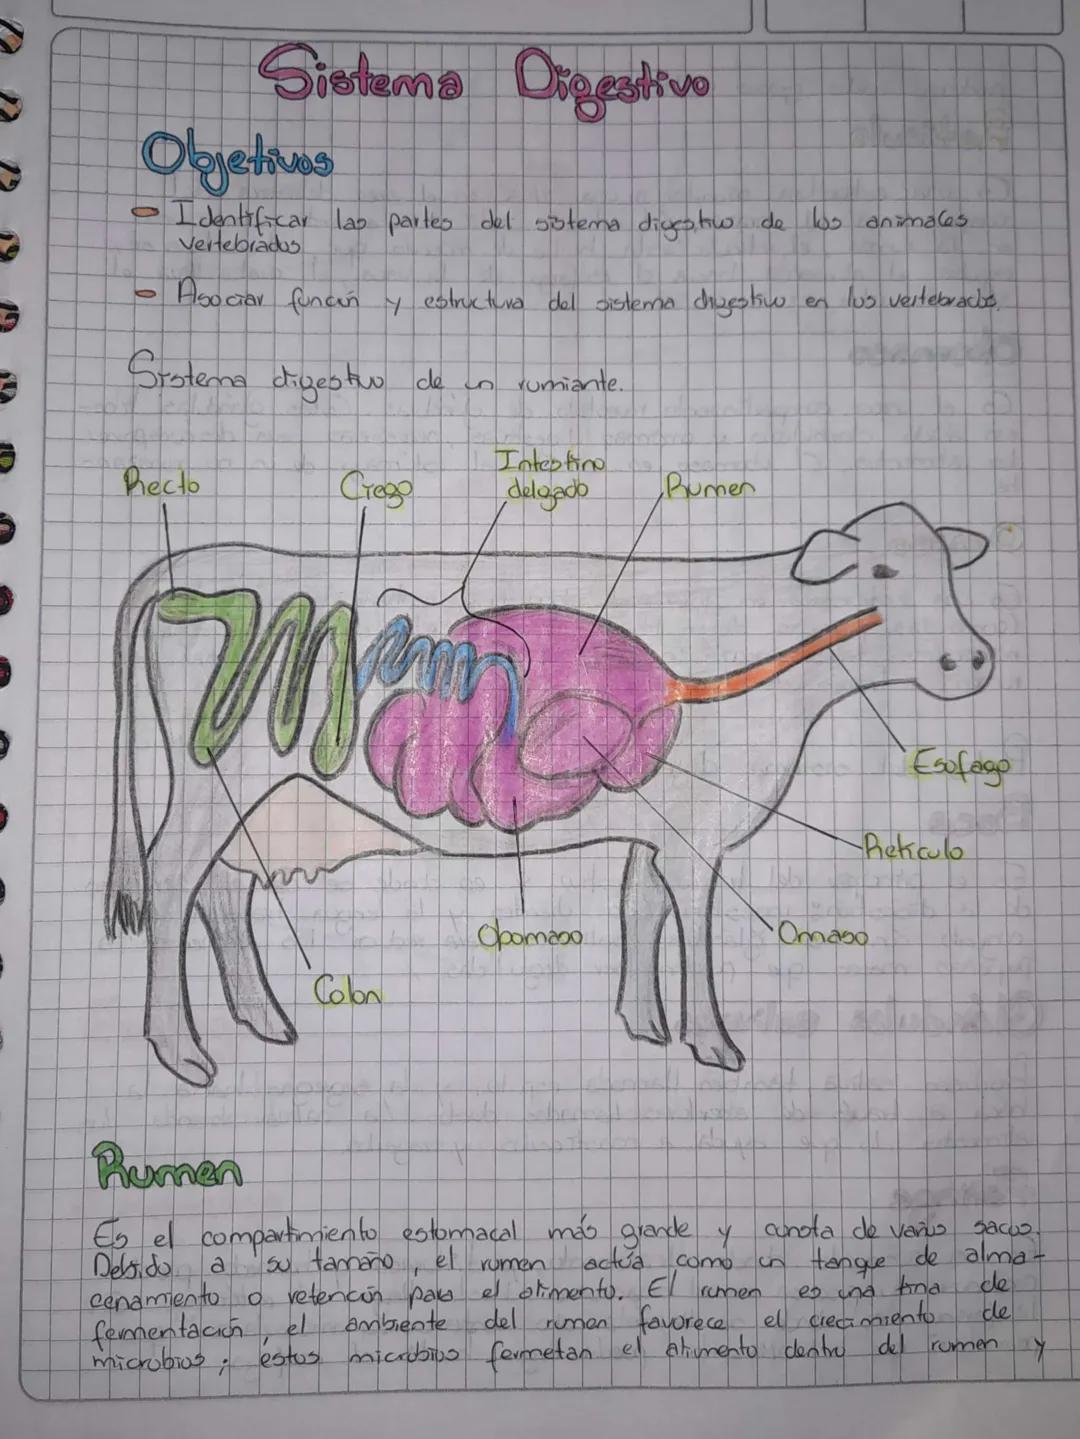 Sistema Digestivo
Objetivos
- Identificar las partes del sistema digestivo de los animales
vertebrados
- Asociar función y estructura del sistema digestivo en los vertebrados.
Sistema digestivo de un rumiante.
Recto
Ciego
Intestino
delgado
Rumen
Esofago
Reticulo
Omaso
Obomaso
Colon
Rumen
Es el compartimiento estomacal más grande y consta de varios sacos.
Debido a su tamaño, el rumen actúa como un tanque de alma-
cenamiento o retención para el alimento. El rumen es una tina de
fermentación, el ambiente del rumen favorece el crecimiento de
microbios; éstos microbios fermetan el alimento dentro del rumen y